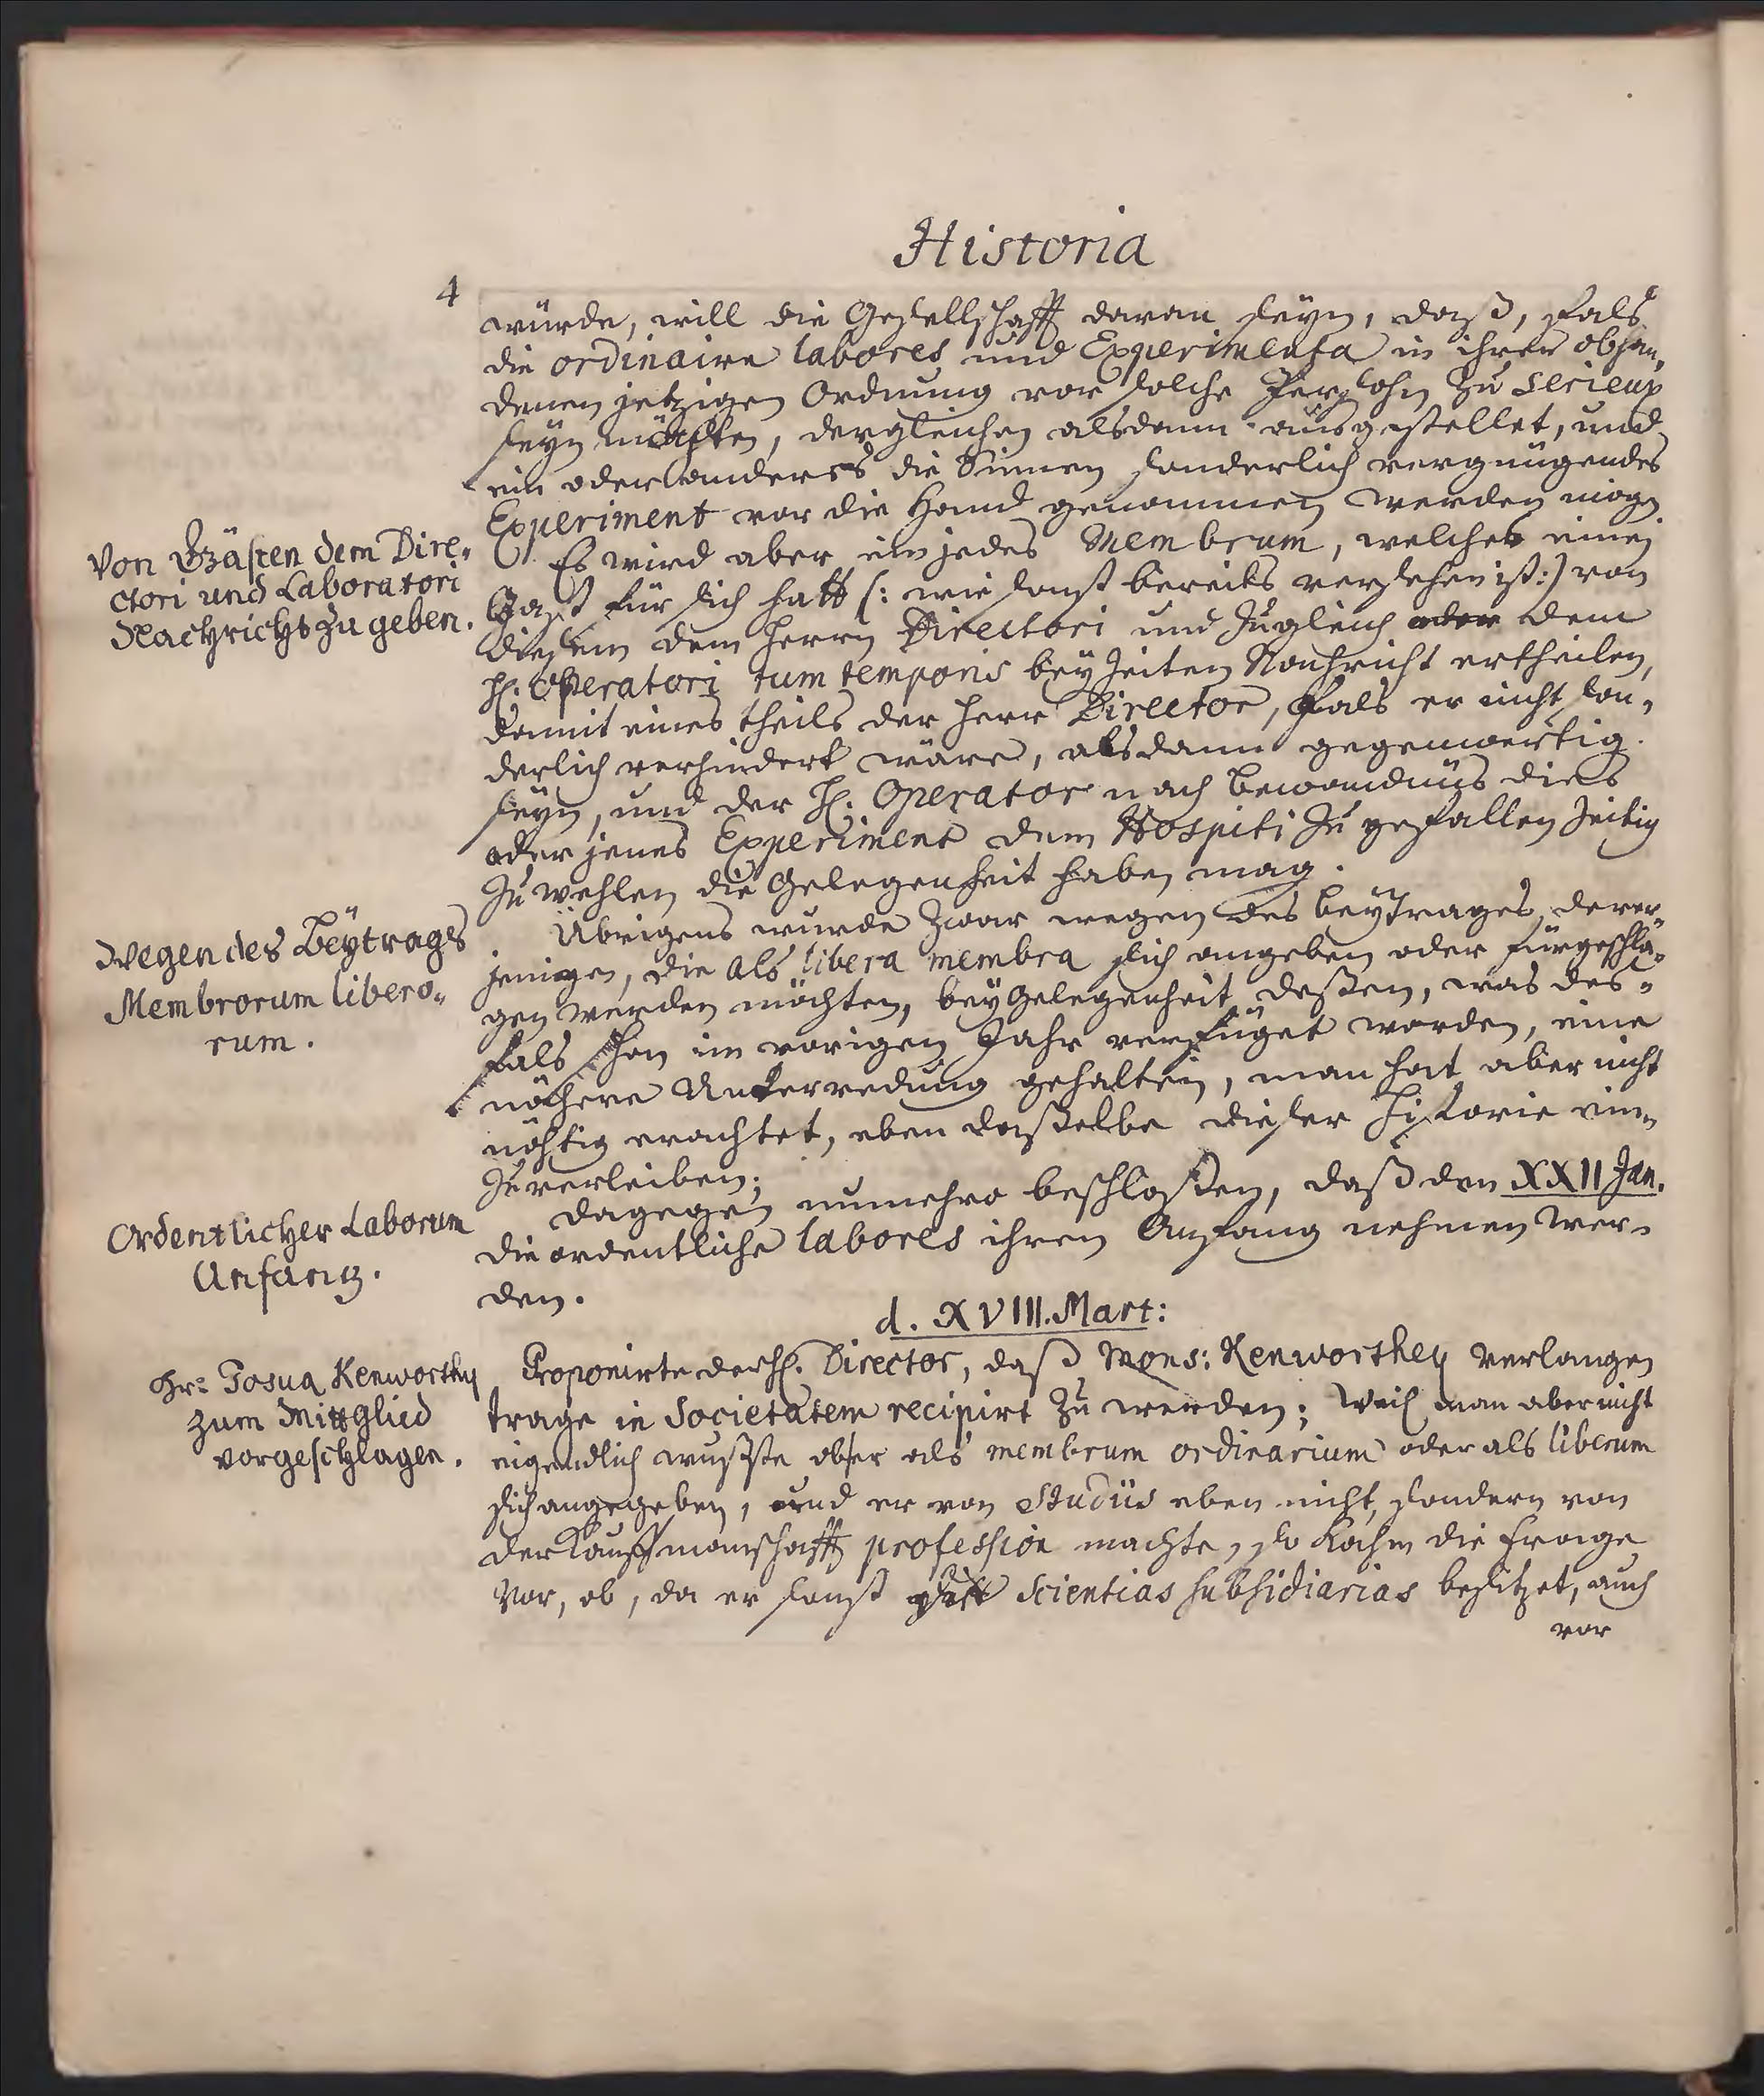 Historia
4
würde, will die Gesellschafft daran seyn, daß, fals
die ordinaire labores und Experimenta in ihrer obhan„
denen jetzigen Ordnung vor solche Persohn zu serieux
seyn möchten, dergleichen alsdann ausgestellet, und
ein oder anderes die Sinnen sonderlich vergnügendes
Experiment vor die Hand genommen werden möge.
Von Gästen dem Dire„
ctori und Laboratori
Nachricht zu geben.
Es wird aber ein jedes Membrum, welches einen
Gast für sich hatt (: wie sonst bereits versehen ist:) von
diesem dem Herrn Directori und zugleich oder dem
H. Operatori tum temporis bey Zeiten Nachricht ertheilen,
damit eines theils der Herr Director, fals er nicht son„
derlich verhindert wäre, alsdann gegenwertig
seyn, und der H. Operator nach bewandnüs dies
oder jenes Experiment dem Hospiti zu gefallen zeitig
zu wehlen die Gelegenheit haben mag.
Wegen des Beytrages
Membrorum libero„
rum.
Übrigens wurde zwar wegen des beytrages derer„
jenigen, die als libera membra sich angeben oder fürgeschla„
gen werden möchten, bey Gelegenheit deßen, was des„
fals schon im vorigen Jahr verfüget worden, eine
nähere Unterredung gehalten, man hat aber nicht
nöhtig erachtet, eben daßelbe dieser Historie ein„
zuverleiben;
Ordentlicher Laborum
Anfang.
dagegen nunmehro beschloßen, daß den XXII Jan.
die ordentliche labores ihren Anfang nehmen wer„
den.
d. XVIII. Mart:
Hr: Josua Kenworthy
zum Mittglied
vorgeschlagen.
Proponirte der H. Director, daß Mons: Kenworthey verlangen
trage in Societatem recipirt zu werden; Weil man aber nicht
eigendlich wußste ob er als membrum ordinarium oder als liberum
sich angegeben, und er von Studiis eben nicht, sondern von
der Kauffmanschafft profession machte, so kahm die Frage
vor, ob, da er sonst Scientias subsidiarias besitzet, auch
vor